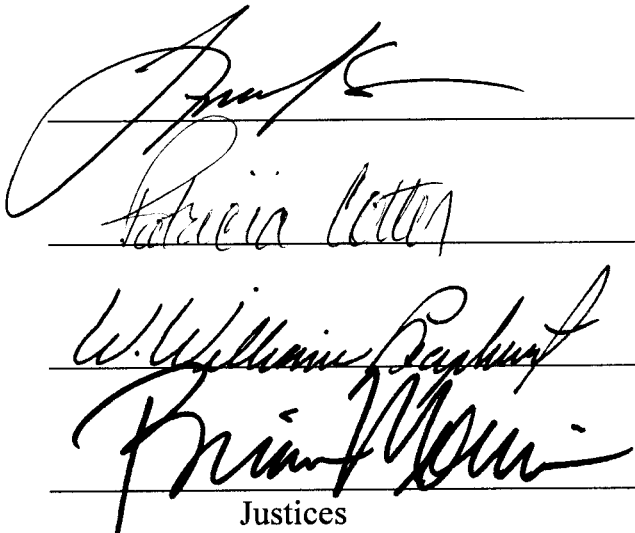 Patricia Cotter
W. William Leaphart
Brian Morris
Justices